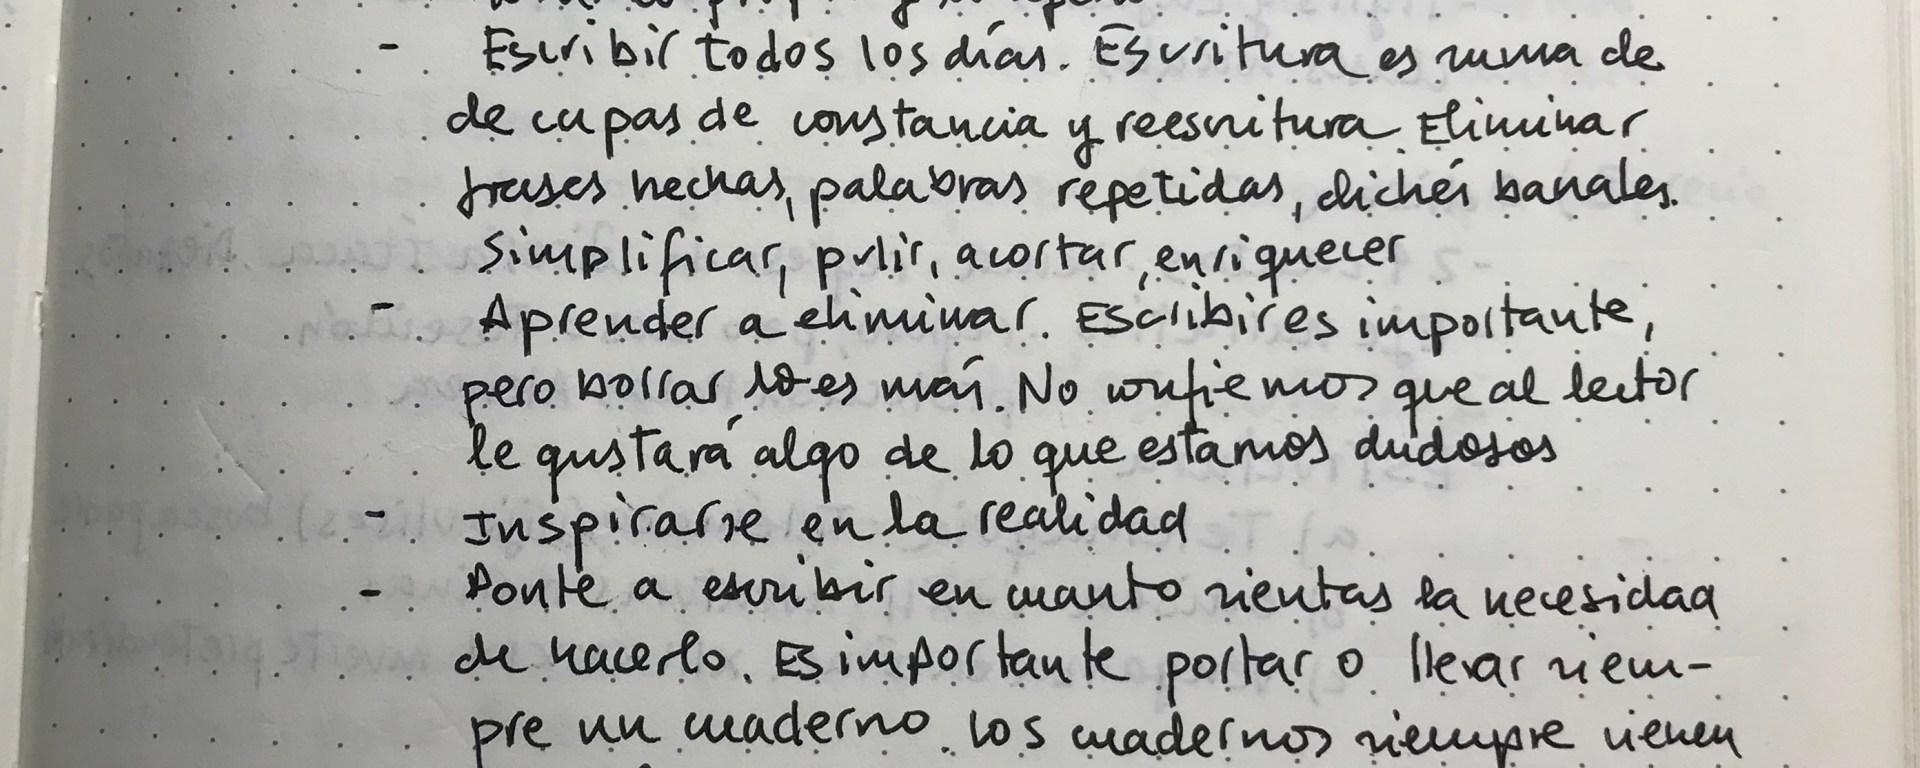 - Escribir todos los días. Escritura es suma de
de capas de constancia y reescritura. Eliminar
frases hechas, palabras repetidas, clichés banales.
Simplificar, pulir, acortar, enriquecer
- Aprender a eliminar. Escribir es importante,
pero borrar lo es más. No confiemos que al lector
le gustará algo de lo que estamos dudosos
- Inspirarse en la realidad
- Ponte a escribir en cuanto sientas la necesidad
de hacerlo. Es importante portar o llevar siem-
pre un cuaderno. Los cuadernos siempre vienen